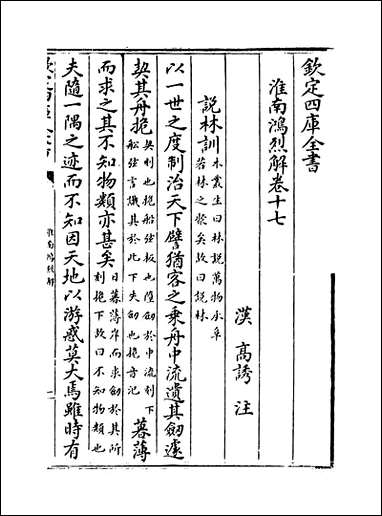 欽定四庫全書
淮南鴻烈解卷十七
漢 高誘 注
說林訓 木叢生曰林說萬物承阜
若林之聚矣故曰說林
以一世之度制治天下譬猶客之乘舟中流遺其劒遽
契其舟桅 契刻也桅船弦板也墮劒於中流刻下
船弦言其於此下失劒也桅音 暮薄
而求之其不知物類亦甚矣 日暮薄岸而求劒於其所
刻桅下故曰不知物類也
夫隨一隅之迹而不知因天地以游惑莫大焉雖時有
淮南鴻烈解
一